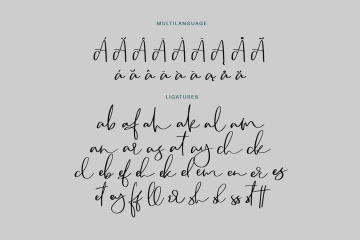 MULTILANGUAGE
Á Ă Â Ä À Ā Ą Å Ã
á ă â ä à ā ą å ã
LIGATURES
ab af ah ak al am
an ar as at ay ch ck
d eb ef eh ek el em en er es
et ey ff ll or sh sk ss st tt